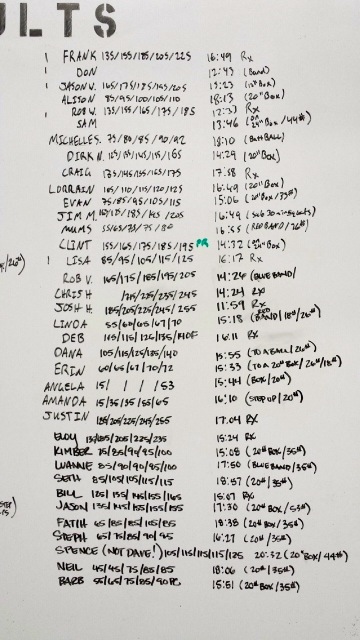 ULTS
1 FRANK 135/155/185/205/225 16:49 Rx
1 DON 12:43 (Band)
1 JASON V. 165/175/185/195/205 13:23 (12" Box)
ALISON 85/95/100/105/110 18:13 (20" Box)
1 ROB W. 135/155/165/175/185 12:31 Rx
SAM 13:46 (24" Box/44#)
MICHELLE S. 75/80/85/90/92 18:10 (Butt BALL)
DIRK N. /165 14:29 (20" Box)
CRAIG 135/145/155/165/175 17:58 Rx
LORRAIN 105/110/115/120/125 16:49 (20" Box)
EVAN 75/85/95/105/115 15:06 (20" Box/35#)
JIM M. /185/ /205 16:49
MUMS 55/65/70/75/80 16:55 (RED BAND/26#)
CLINT 155/165/175/185/195 PR 14:32 (24" Box)
1 LISA 85/95/105/115/125 16:17 Rx
ROB V. 165/175/185/195/205 14:24 (BLUE BAND)
CHRIS H /215/225/235/245 14:24 Rx
JOSH H. 185/205/225/245/255 11:59 Rx
LINDA 55/60/65/67/70 15:18 (RED BAND/18"/26#)
DEB 105/115/125/135/140F 16:11 Rx
DANA 105/115/125/135/140 15:55 (TO A BALL/26#)
ERIN 60/65/67/70/72 15:33 (TO A 20" BOX/26#/18#)
ANGELA 15/ / / /53 15:44 (BOX/20#)
AMANDA 15/35/35/55/65 16:10 (STEP UP/20#)
JUSTIN 185/205/225/245/255 17:04 RX
ELOY 135/185/205/225/235 15:24 RX
KIMBER 75/85/90/95/100 15:08 (20" BOX/35#)
WANNIE 85/90/90/95/100 17:50 (BLUE BAND/35#)
SETH 85/105/105/115/115 18:57 (20"/35#)
BILL 125/135/145/155/165 15:07 RX
JASON 135/145/155/155/155 17:30 (20" BOX/53#)
FATIH 65/85/85/105/85 18:38 (20" BOX/35#)
STEPH 65/75/85/90/95 16:27 (20"/35#)
SPENCE (NOT DAVE!) 105/115/115/115/125 20:52 (20" BOX/44#)
NEIL 45/45/75/85/85 18:06 (20"/35#)
BARB 55/65/75/85/90 PR 15:51 (20" BOX/35#)